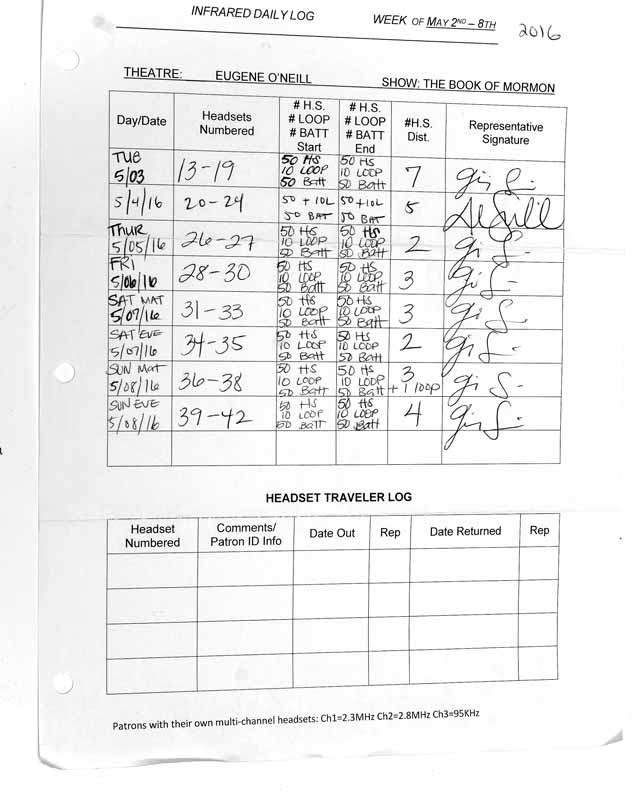 INFRARED DAILY LOG WEEK OF MAY 2ND – 8TH 2016
THEATRE: EUGENE O'NEILL SHOW: THE BOOK OF MORMON
Day/Date Headsets Numbered # H.S. # LOOP # BATT Start # H.S. # LOOP # BATT End #H.S. Dist. Representative Signature
TUE 5/03 13-19 50 HS 10 LOOP 50 Batt 50 HS 10 LOOP 50 Batt 7
5/4/16 20-24 50 + 10L 50 BAT 50 +10L 50 BAT 5
THUR 5/05/16 26-27 50 HS 10 LOOP 50 Batt 50 HS 10 LOOP 50 Batt 2
FRI 5/06/16 28-30 50 HS 10 LOOP 50 Batt 50 HS 10 LOOP 50 Batt 3
SAT MAT 5/07/16 31-33 50 HS 10 LOOP 50 Batt 50 HS 10 LOOP 50 Batt 3
SAT EVE 5/07/16 34-35 50 HS 10 LOOP 50 Batt 50 HS 10 LOOP 50 Batt 2
SUN MAT 5/08/16 36-38 50 HS 10 LOOP 50 Batt 50 HS 10 LOOP 50 Batt 3 + 1 loop
SUN EVE 5/08/16 39-42 50 HS 10 LOOP 50 BATT 50 HS 10 LOOP 50 Batt 4
HEADSET TRAVELER LOG
Headset Numbered Comments/ Patron ID Info Date Out Rep Date Returned Rep
Patrons with their own multi-channel headsets: Ch1=2.3MHz Ch2=2.8MHz Ch3=95KHz